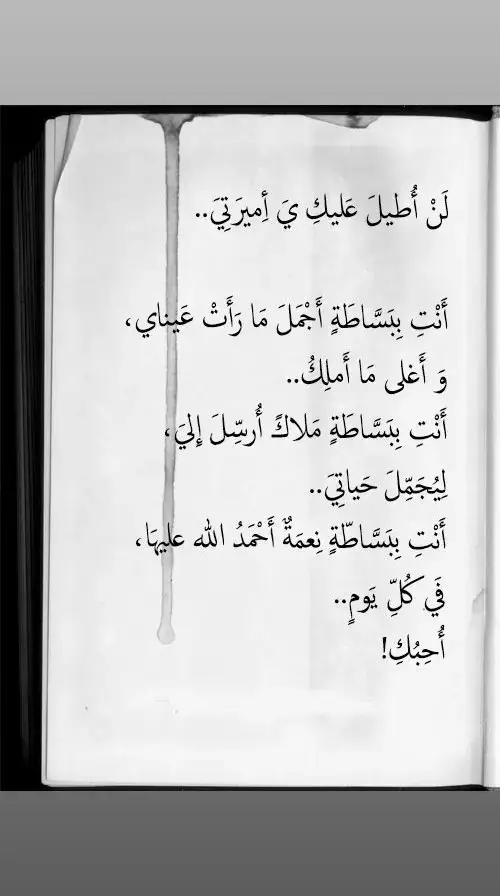 لَنْ أُطيلَ عَليكِ يَ أِميرَتِيَ..
أَنْتِ بِبَسَّاطَةٍ أَجْمَلَ مَا رَأَتْ عَيناي،
وَ أَغلى مَا أَملِكُ..
أَنْتِ بِبَسَّاطَةٍ مَلاكً أُرسِّلَ إِليَ،
لِيُجَمِّلَ حَياتِيَ..
أَنْتِ بِبَسَّاطّةٍ نِعمَةٌ أَحْمَدُ الله عليهَا،
فَي كُلِّ يَومٍ..
أُحِبُكِ!